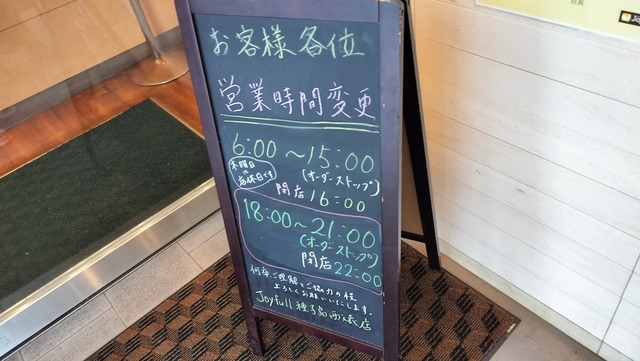 お客様各位
営業時間変更
6:00〜15:00
(オーダーストップ)
木曜日
は
店休日です
閉店 16:00
18:00〜21:00
(オーダーストップ)
閉店 22:00
何卒ご理解とご協力の程
よろしくお願いいたします。
Joyfull 種子島西之表店
店長